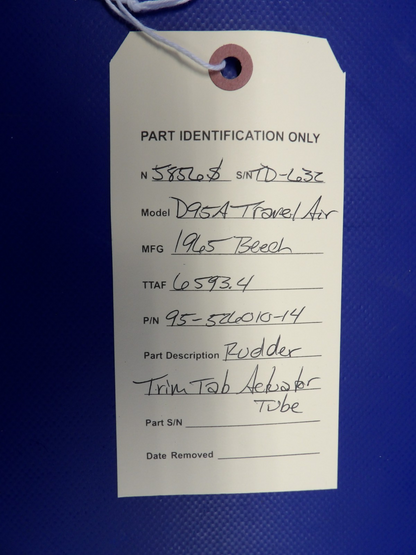 PART IDENTIFICATION ONLY
N 5856S S/N TD-632
Model D95A Travel Air
MFG 1965 Beech
TTAF 6593.4
P/N 95-526010-14
Part Description Rudder
Trim Tab Actuator
Tube
Part S/N
Date Removed